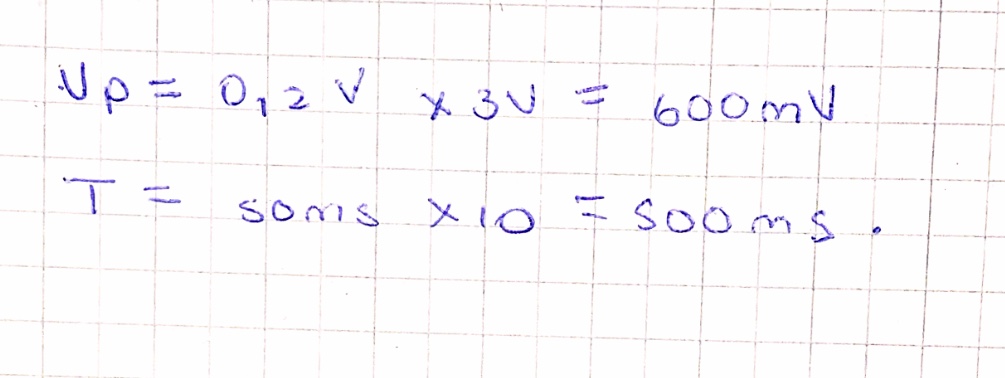 Vp = 0,2 V x 3V = 600mV
T = 50ms x 10 = 500ms.